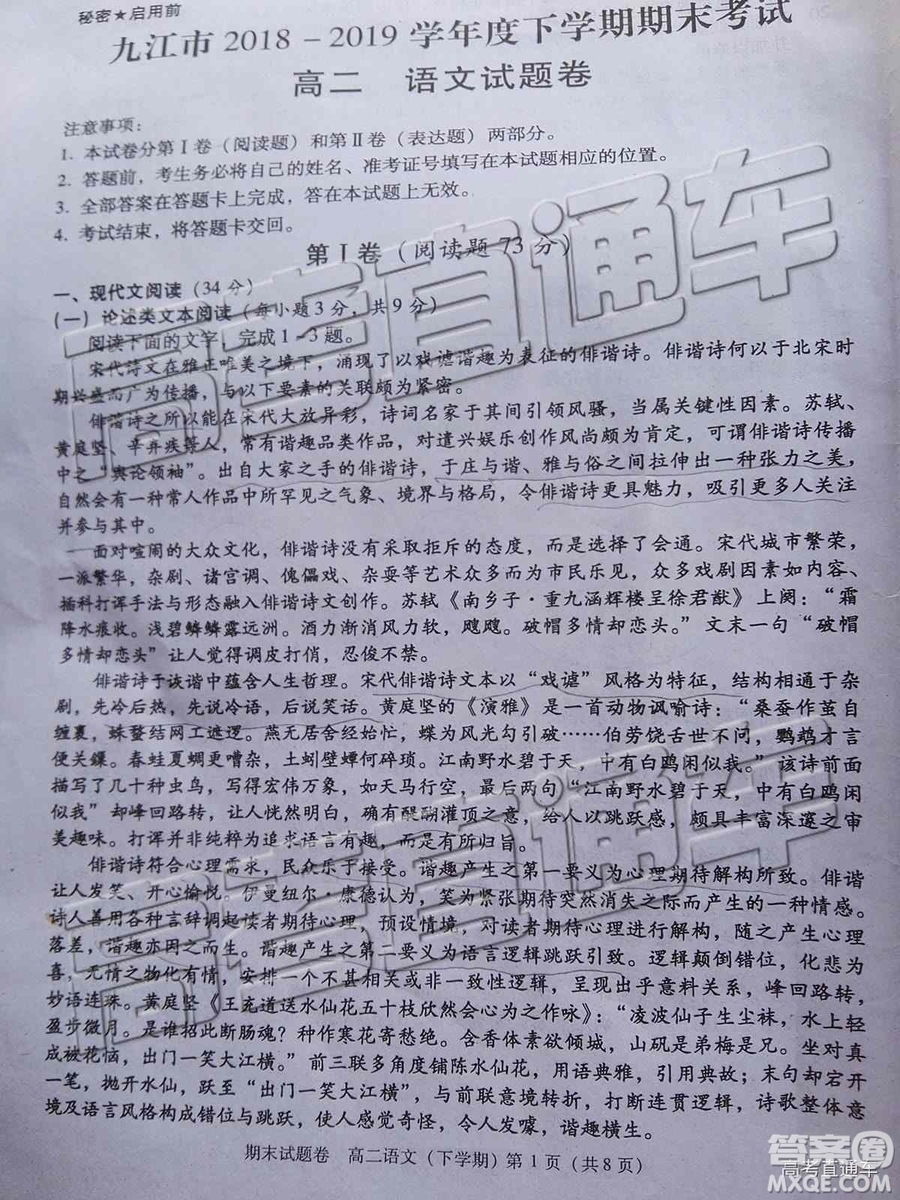 秘密★启用前
九江市 2018－2019 学年度下学期期末考试
高二 语文试题卷
注意事项：
1. 本试卷分第Ⅰ卷（阅读题）和第Ⅱ卷（表达题）两部分。
2. 答题前，考生务必将自己的姓名、准考证号填写在本试题相应的位置。
3. 全部答案在答题卡上完成，答在本试题上无效。
4. 考试结束，将答题卡交回。
第Ⅰ卷（阅读题 73 分）
一、现代文阅读（34 分）
（一）论述类文本阅读（每小题 3 分，共 9 分）
阅读下面的文字，完成 1－3 题。
宋代诗文在雅正唯美之境下，涌现了以戏谑谐趣为表征的俳谐诗。俳谐诗何以于北宋时
期兴盛而广为传播，与以下要素的关联颇为紧密。
俳谐诗之所以能在宋代大放异彩，诗词名家于其间引领风骚，当属关键性因素。苏轼、
黄庭坚、辛弃疾等人，常有谐趣品类作品，对遣兴娱乐创作风尚颇为肯定，可谓俳谐诗传播
中之“舆论领袖”。出自大家之手的俳谐诗，于庄与谐、雅与俗之间拉伸出一种张力之美，
自然会有一种常人作品中所罕见之气象、境界与格局，令俳谐诗更具魅力，吸引更多人关注
并参与其中。
面对喧闹的大众文化，俳谐诗没有采取拒斥的态度，而是选择了会通。宋代城市繁荣，
一派繁华，杂剧、诸宫调、傀儡戏、杂耍等艺术众多而为市民乐见，众多戏剧因素如内容、
插科打诨手法与形态融入俳谐诗文创作。苏轼《南乡子·重九涵辉楼呈徐君猷》上阕：“霜
降水痕收。浅碧鳞鳞露远洲。酒力渐消风力软，飕飕。破帽多情却恋头。”文末一句“破帽
多情却恋头”让人觉得调皮打俏，忍俊不禁。
俳谐诗于诙谐中蕴含人生哲理。宋代俳谐诗文本以“戏谑”风格为特征，结构相通于杂
剧，先冷后热，先说冷语，后说笑话。黄庭坚的《演雅》是一首动物讽喻诗：“桑蚕作茧自
缠裹，蛛蝥结网工遮逻。燕无居舍经始忙，蝶为风光勾引破……伯劳饶舌世不问，鹦鹉才言
便关鏁。春蛙夏蜩更嘈杂，土蚓壁蟫何碎琐。江南野水碧于天，中有白鸥闲似我。”该诗前面
描写了几十种虫鸟，写得宏伟万象，如天马行空，最后两句“江南野水碧于天，中有白鸥闲
似我”却峰回路转，让人恍然明白，确有醍醐灌顶之意，给人以跳跃感，颇具丰富深邃之审
美趣味。打诨并非纯粹为追求语言有趣，而是有所归旨。
俳谐诗符合心理需求，民众乐于接受。谐趣产生之第一要义为心理期待解构所致。俳谐
让人发笑、开心愉悦。伊曼纽尔·康德认为，笑为紧张期待突然消失之际而产生的一种情感。
诗人善用各种言辞调起读者期待心理，预设情境，对读者心理进行解构，随之产生心理
落差，谐趣亦因之而生。谐趣产生之第二要义为语言逻辑跳跃引致。逻辑颠倒错位，化悲为
喜，无情之物化有情，安排一个不甚相关或非一致性逻辑，呈现出乎意料效果，峰回路转，
妙语连珠。黄庭坚《王充道送水仙花五十枝欣然会心为之作咏》：“凌波仙子生尘袜，水上轻
盈步微月。是谁招此断肠魂？种作寒花寄愁绝。含香体素欲倾城，山矾是弟梅是兄。坐对真
成被花恼，出门一笑大江横。”前三联多角度铺陈水仙花，用语典雅，引用典故；末句却宕开
一笔，抛开水仙，跃至“出门一笑大江横”，与前联意境转折，打断连贯逻辑，诗歌整体意
境及语言风格构成错位与跳跃，使人感觉奇怪，令人发笑，谐趣横生。
期末试题卷 高二语文（下学期）第 1 页（共 8 页）
高考直通车
高考直通车
高考直通车
答案圈
MXQE.COM